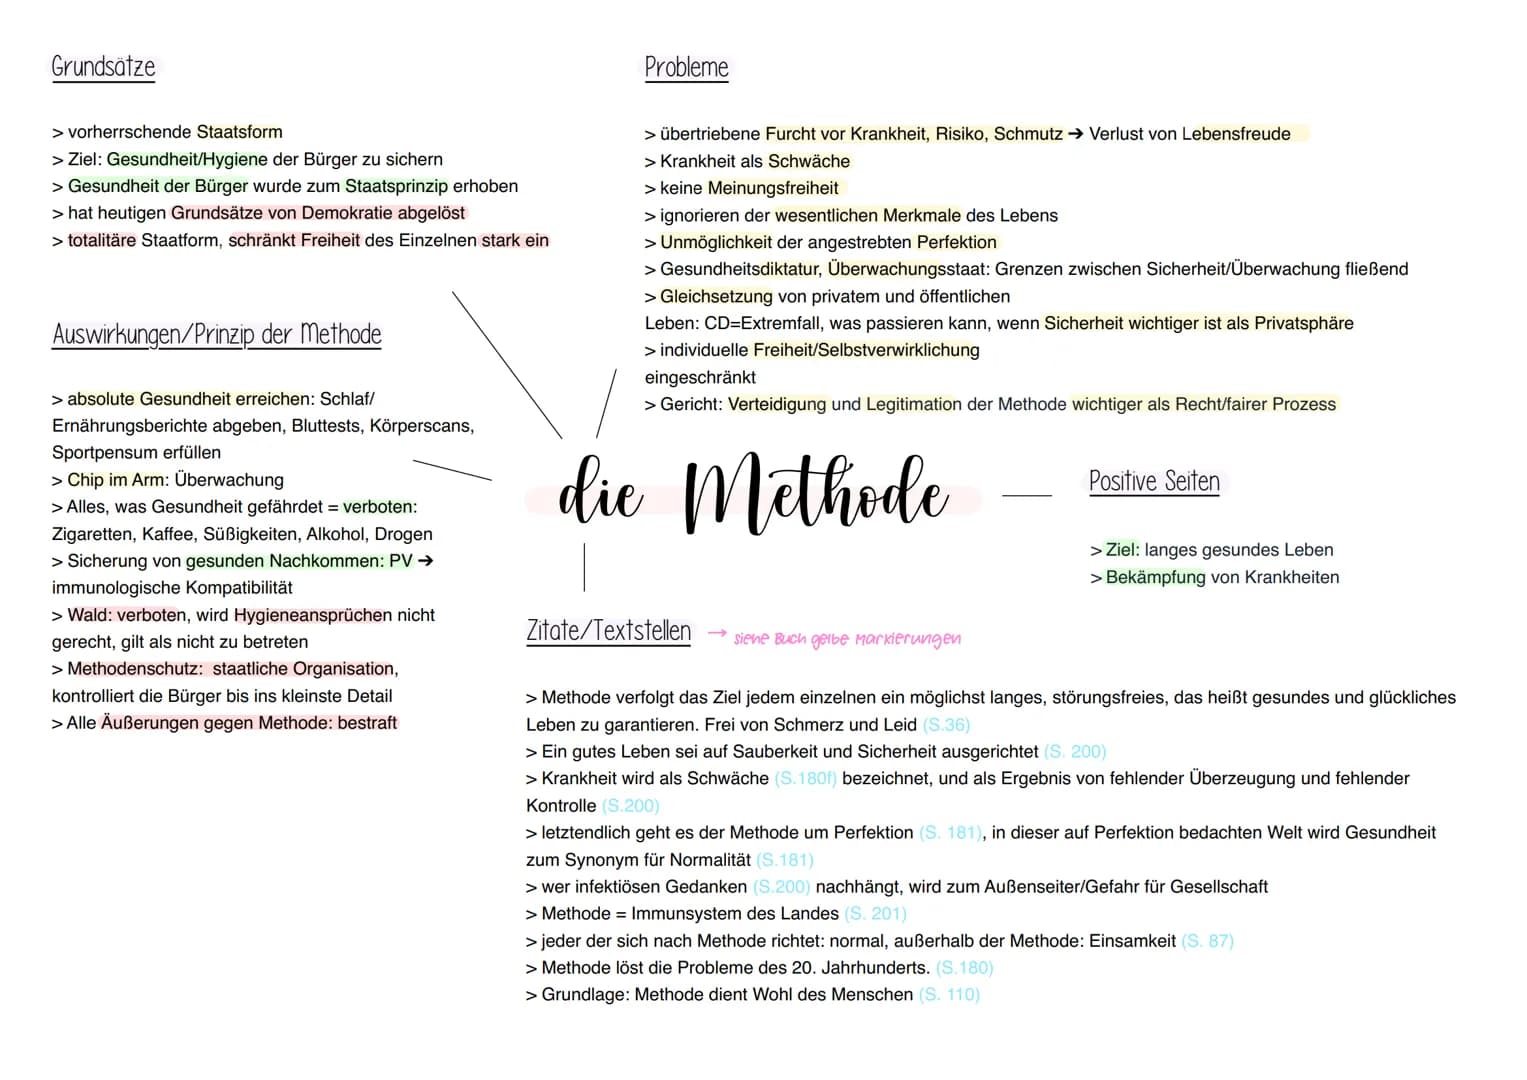 Grundsätze
> vorherrschende Staatsform
> Ziel: Gesundheit/Hygiene der Bürger zu sichern
> Gesundheit der Bürger wurde zum Staatsprinzip erhoben
> hat heutigen Grundsätze von Demokratie abgelöst
> totalitäre Staatform, schränkt Freiheit des Einzelnen stark ein
Auswirkungen/Prinzip der Methode
> absolute Gesundheit erreichen: Schlaf/
Ernährungsberichte abgeben, Bluttests, Körperscans,
Sportpensum erfüllen
> Chip im Arm: Überwachung
> Alles, was Gesundheit gefährdet = verboten:
Zigaretten, Kaffee, Süßigkeiten, Alkohol, Drogen
> Sicherung von gesunden Nachkommen: PV →
immunologische Kompatibilität
> Wald: verboten, wird Hygieneansprüchen nicht
gerecht, gilt als nicht zu betreten
> Methodenschutz: staatliche Organisation,
kontrolliert die Bürger bis ins kleinste Detail
> Alle Äußerungen gegen Methode: bestraft
Probleme
> übertriebene Furcht vor Krankheit, Risiko, Schmutz → Verlust von Lebensfreude
> Krankheit als Schwäche
> keine Meinungsfreiheit
> ignorieren der wesentlichen Merkmale des Lebens
> Unmöglichkeit der angestrebten Perfektion
> Gesundheitsdiktatur, Überwachungsstaat: Grenzen zwischen Sicherheit/Überwachung fließend
> Gleichsetzung von privatem und öffentlichen
Leben: CD=Extremfall, was passieren kann, wenn Sicherheit wichtiger ist als Privatsphäre
> individuelle Freiheit/Selbstverwirklichung
eingeschränkt
> Gericht: Verteidigung und Legitimation der Methode wichtiger als Recht/fairer Prozess
die Methode
Positive Seiten
> Ziel: langes gesundes Leben
> Bekämpfung von Krankheiten
Zitate/Textstellen → siehe Buch gelbe Markierungen
> Methode verfolgt das Ziel jedem einzelnen ein möglichst langes, störungsfreies, das heißt gesundes und glückliches
Leben zu garantieren. Frei von Schmerz und Leid (S.36)
> Ein gutes Leben sei auf Sauberkeit und Sicherheit ausgerichtet (S. 200)
> Krankheit wird als Schwäche (S.180f) bezeichnet, und als Ergebnis von fehlender Überzeugung und fehlender
Kontrolle (S.200)
> letztendlich geht es der Methode um Perfektion (S. 181), in dieser auf Perfektion bedachten Welt wird Gesundheit
zum Synonym für Normalität (S.181)
> wer infektiösen Gedanken (S.200) nachhängt, wird zum Außenseiter/Gefahr für Gesellschaft
> Methode = Immunsystem des Landes (S. 201)
> jeder der sich nach Methode richtet: normal, außerhalb der Methode: Einsamkeit (S. 87)
> Methode löst die Probleme des 20. Jahrhunderts. (S.180)
> Grundlage: Methode dient Wohl des Menschen (S. 110)